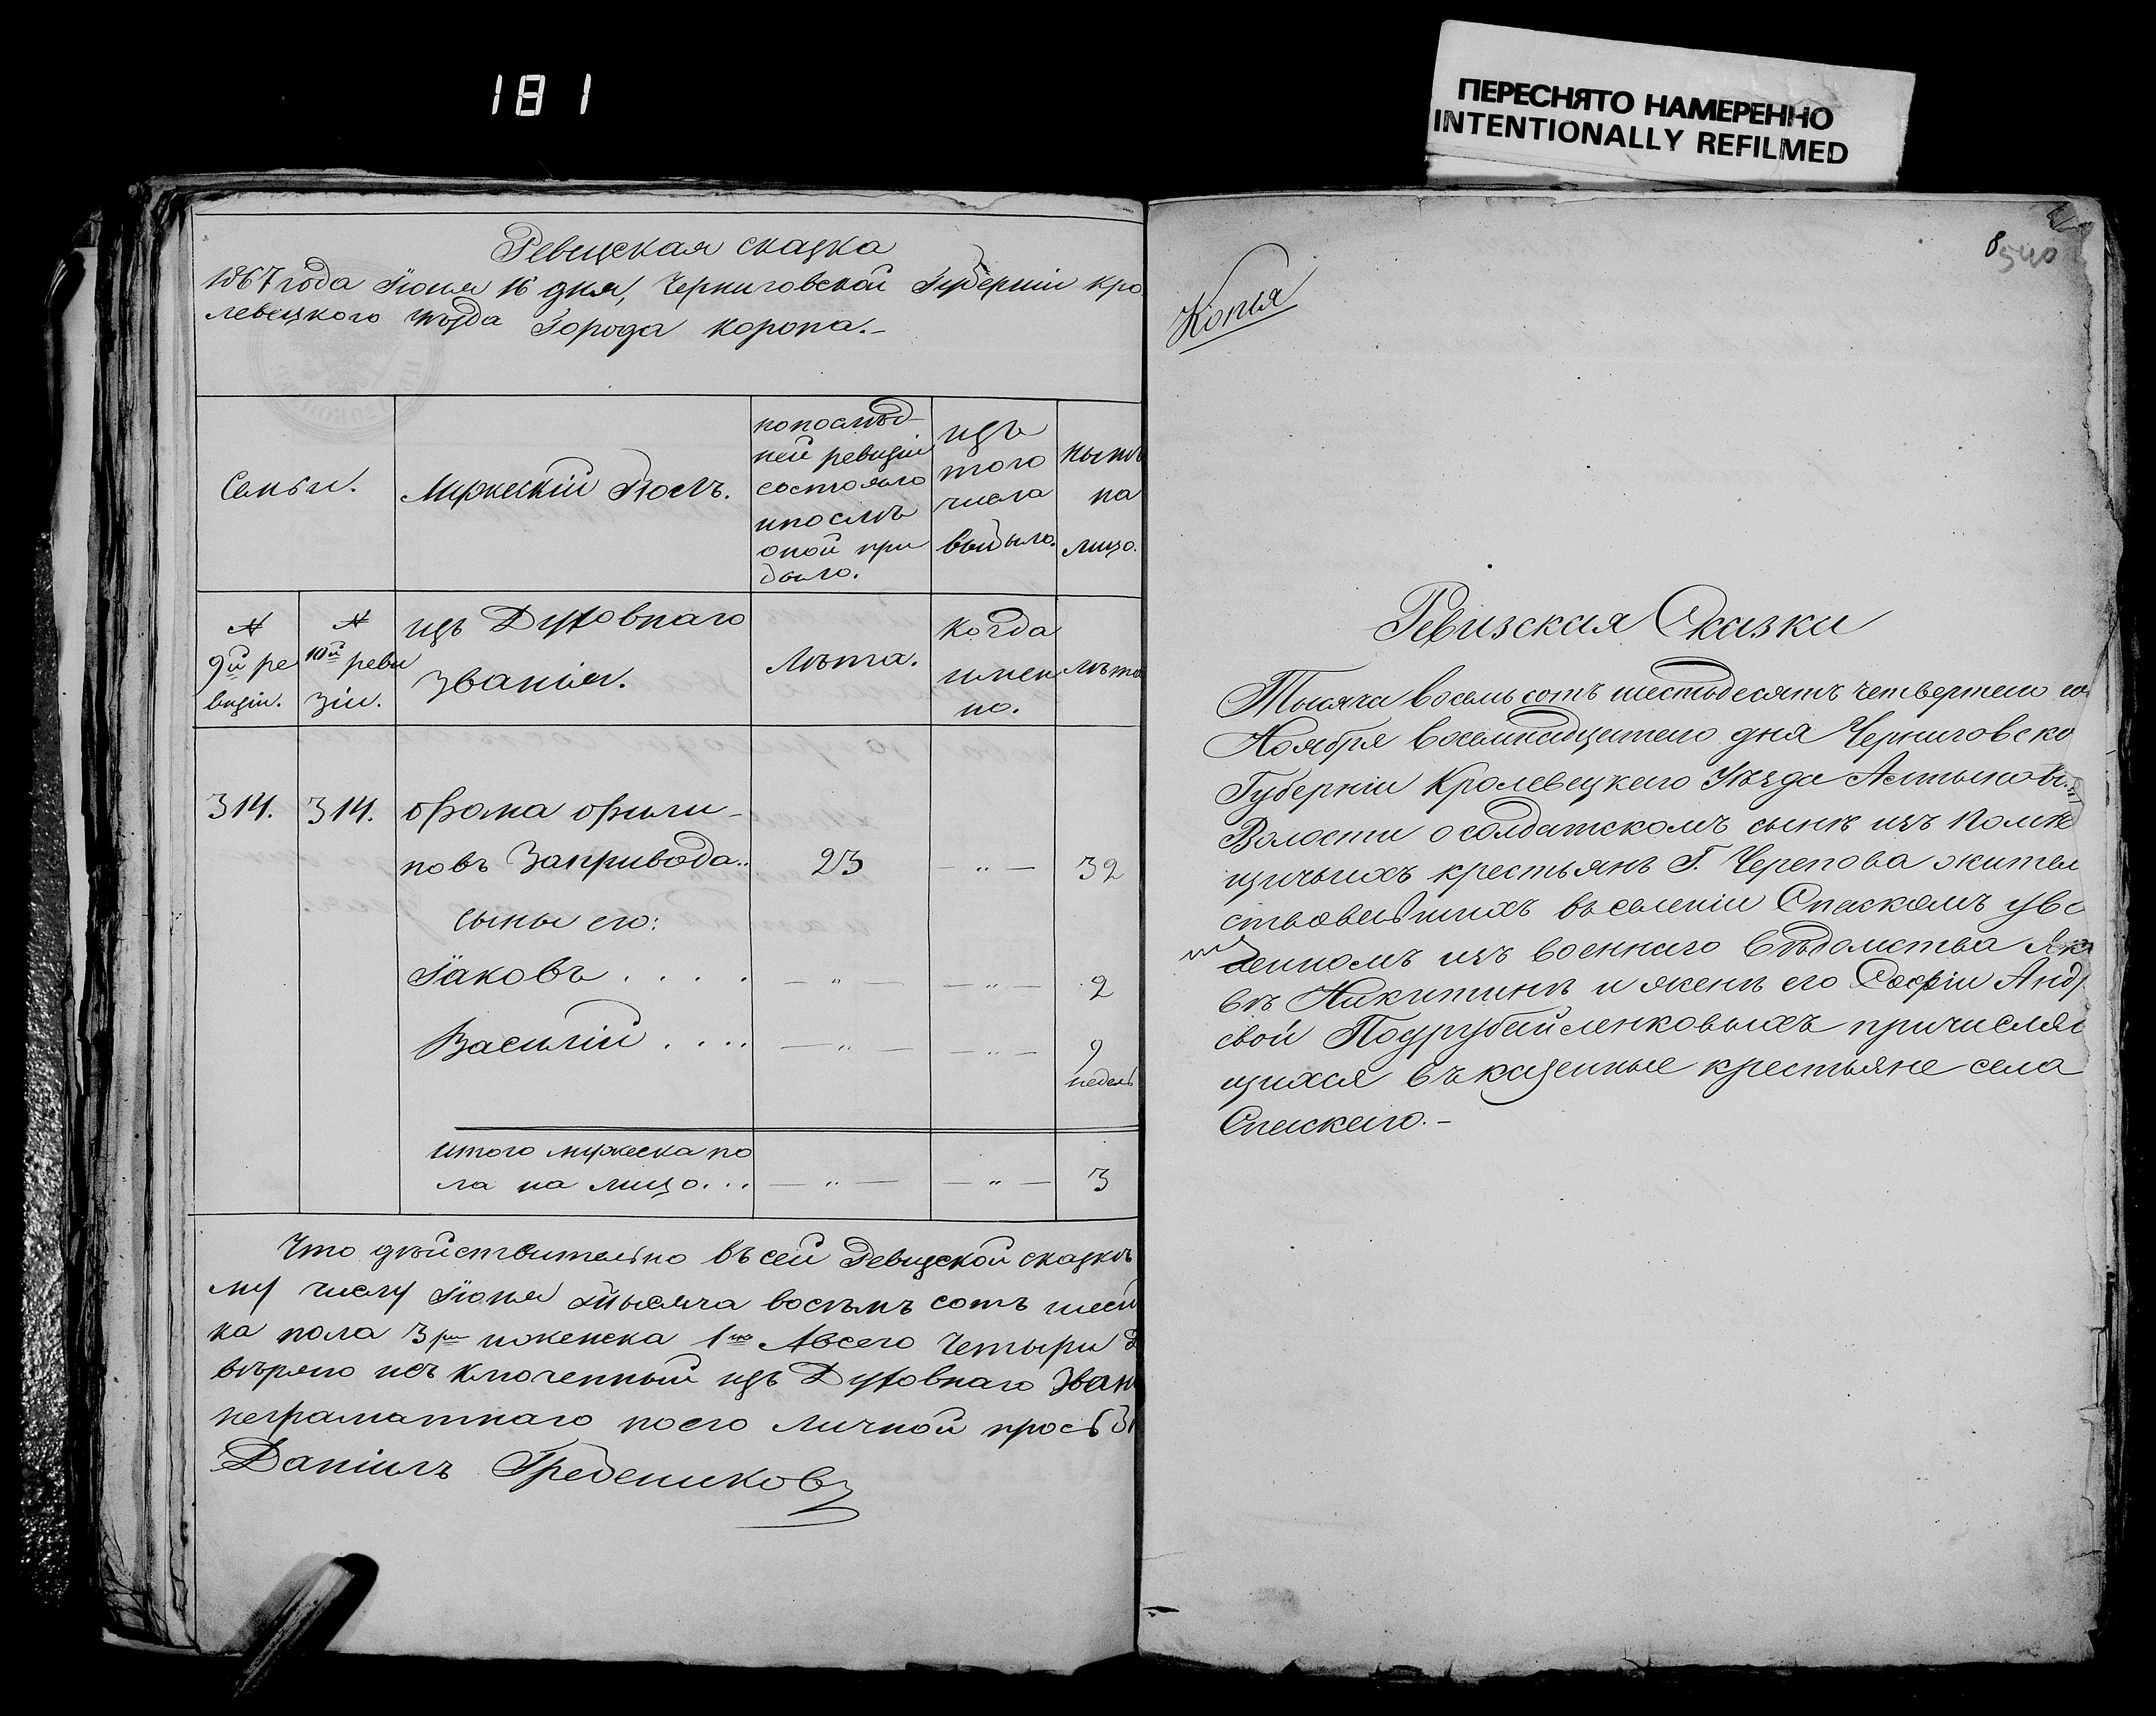 181
ПЕРЕСНЯТО НАМЕРЕННО
INTENTIONALLY REFILMED
Ревизская сказка
1867 года Іюня 16 дня, Черниговской Губерніи Кро
левецкого уѣзда Города Коропа.-
Семьи.
Мужескій Полъ.
попослѣд-
ней ревизіи
состояло
ипослѣ
оной при
было.
изъ
того
числа
выбыло.
нынѣ
на
лицо.
№
9й ре
визіи.
№
10й реви
зіи.
изъ Духовнаго
званія.
лѣта.
когда
имен
но.
лѣта
314.
314.
Фома Фили-
повъ Запривода..
23
— „ —
32
сыны его:
Іаковъ . . . .
— „ —
— „ —
2
Василій . . . .
— „ —
— „ —
9
недель
итого мужеска по
ла на лицо...
— „ —
— „ —
3
Что дѣйствительно въ сей Ревизской сказкѣ
му числу Іюня Тысяча восѣмъ сотъ шест
ка пола 3ри иженска 1но Авсего Четыри
вѣряю исъключенный изъ Духовнаго зван
неграматнаго поего личной прось
Даніилъ Гребениковъ
8
540
Копія
Ревизская Сказка
Тысяча восемь сотъ шестьдесятъ четвертаго го
Ноября восемнадцатаго дня Черниговско
Губерніи Кролевецкаго Уѣзда
Волости о солдатскомъ сынѣ изъ помѣ
щичьихъ крестьянъ Г. Черепова жител
ствовавшихъ въ селеніи Спаскомъ уво
ленномъ изъ военнаго вѣдомства Яко
вѣ Никитинѣ и женѣ его Софіи Анд
евой причисляю
щихся въ казенные крестьяне села
Спаскаго.-